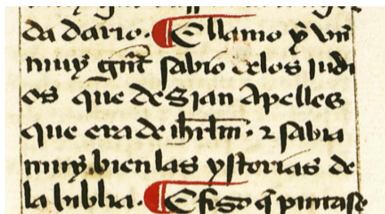 da dario. ¶ E llamo ý vn̄
muy gn̄t sabio delos judi
os que dezian Apelles
que era de ihrl̄m. ⁊ sabia
muy bien las ystorias de
la biblia. ¶ E fizo q̄ pintase